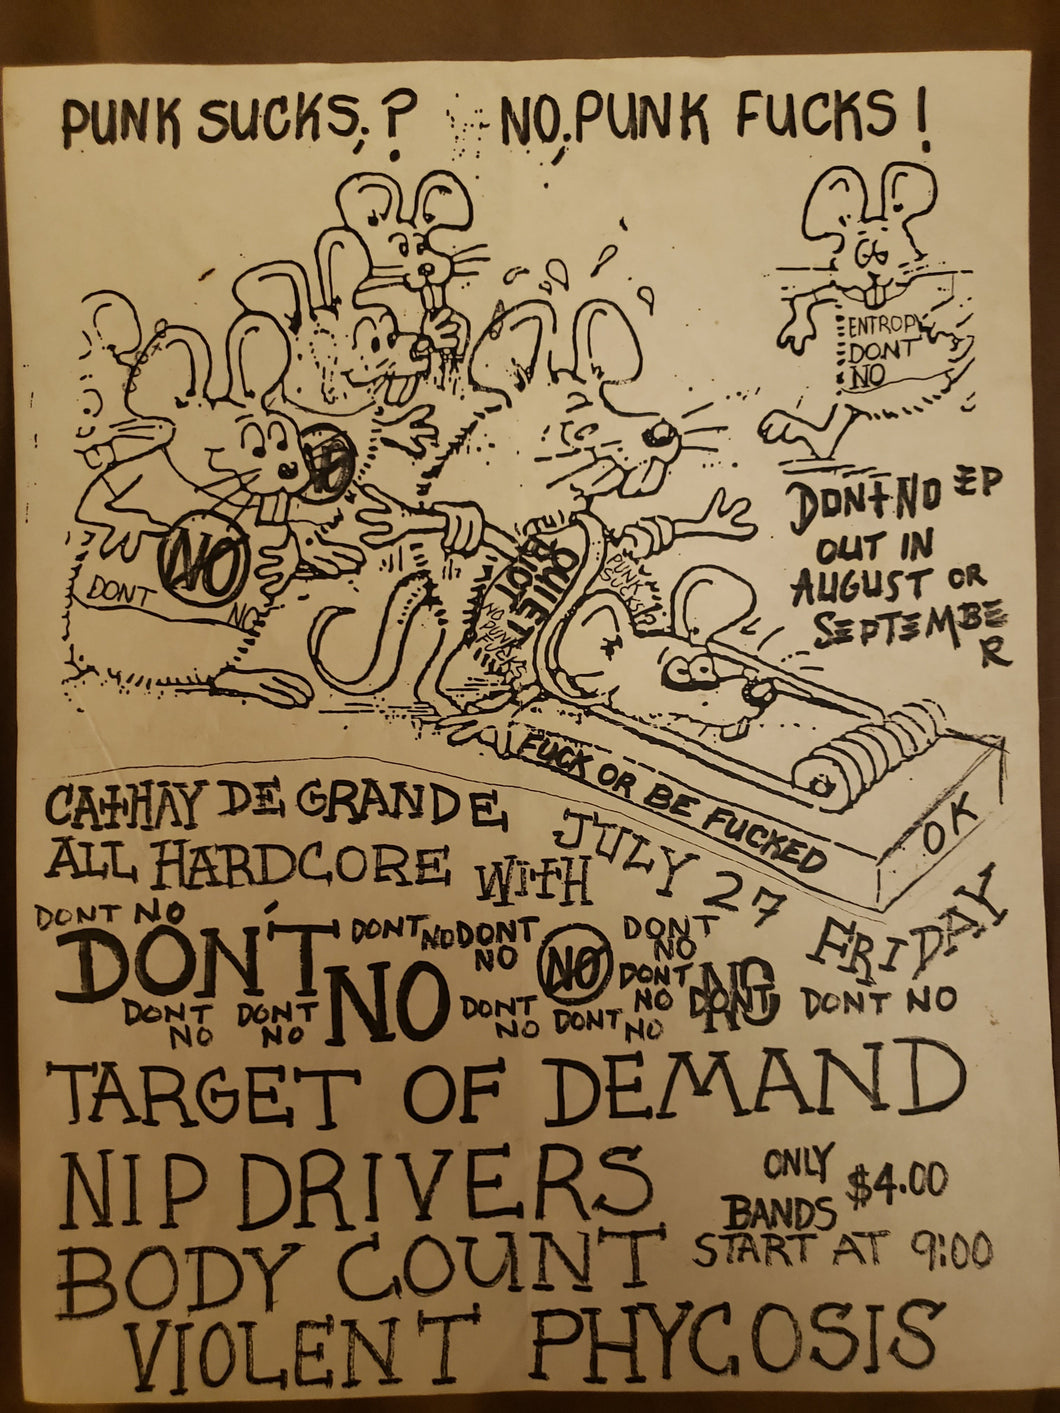 PUNK SUCKS,? NO, PUNK FUCKS!
ENTROPY
DONT
NO
NO
DONT NO
QUIET
RIOT
PUNK
SUCKS
NO PUNK
FUCKS
DON'T NO EP
OUT IN
AUGUST OR
SEPTEMBE
R
FUCK OR BE FUCKED
OK
CATHAY DE GRANDE
ALL HARDCORE WITH
JULY 27
FRIDAY
DONT NO
DON'T NO
DONT NO
DONT
NO
NO
DONT
NO
DONT
NO
DONT NO
DONT NO
DONT
NO
DONT
NO
DONT
NO
DONT
NO
TARGET OF DEMAND
NIP DRIVERS
ONLY $4.00
BODY COUNT
BANDS
START AT 9:00
VIOLENT PHYCOSIS